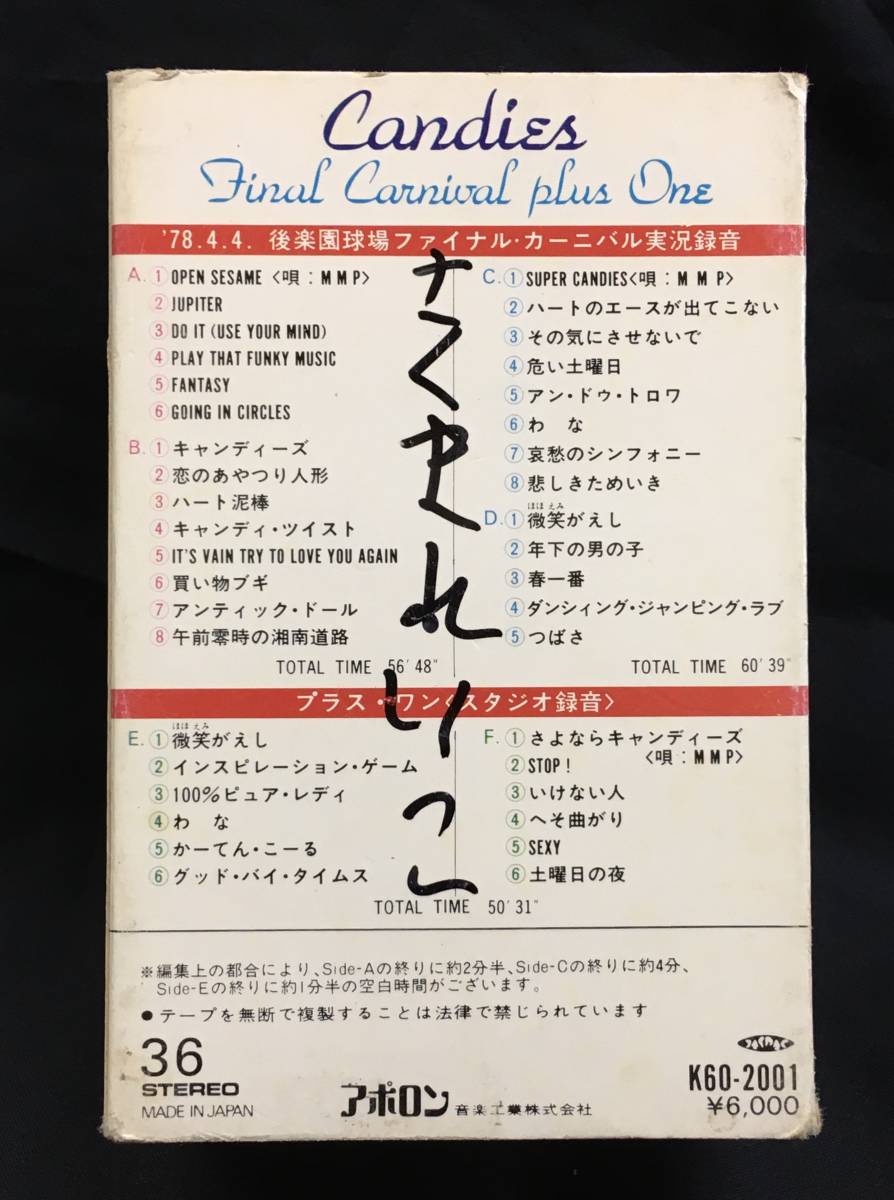 Candies
Final Carnival plus One
'78.4.4. 後楽園球場ファイナル・カーニバル実況録音
A. ① OPEN SESAME <唄：MMP>
② JUPITER
③ DO IT (USE YOUR MIND)
④ PLAY THAT FUNKY MUSIC
⑤ FANTASY
⑥ GOING IN CIRCLES
B. ① キャンディーズ
② 恋のあやつり人形
③ ハート泥棒
④ キャンディ・ツイスト
⑤ IT'S VAIN TRY TO LOVE YOU AGAIN
⑥ 買い物ブギ
⑦ アンティック・ドール
⑧ 午前零時の湘南道路
TOTAL TIME 56'48"
C. ① SUPER CANDIES<唄：MMP>
② ハートのエースが出てこない
③ その気にさせないで
④ 危い土曜日
⑤ アン・ドゥ・トロワ
⑥ わ な
⑦ 哀愁のシンフォニー
⑧ 悲しきためいき
ほほ えみ
D. ① 微笑がえし
② 年下の男の子
③ 春一番
④ ダンシィング・ジャンピング・ラブ
⑤ つばさ
TOTAL TIME 60'39"
プラス・ワン<スタジオ録音>
ほほ えみ
E. ① 微笑がえし
② インスピレーション・ゲーム
③ 100%ピュア・レディ
④ わ な
⑤ かーてん・こーる
⑥ グッド・バイ・タイムス
F. ① さよならキャンディーズ
<唄：MMP>
② STOP!
③ いけない人
④ へそ曲がり
⑤ SEXY
⑥ 土曜日の夜
TOTAL TIME 50'31"
※編集上の都合により、Side-Aの終りに約2分半、Side-Cの終りに約4分、
Side-Eの終りに約1分半の空白時間がございます。
● テープを無断で複製することは法律で禁じられています
36
STEREO
MADE IN JAPAN
アポロン 音楽工業株式会社
JASRAC
K60-2001
¥6,000